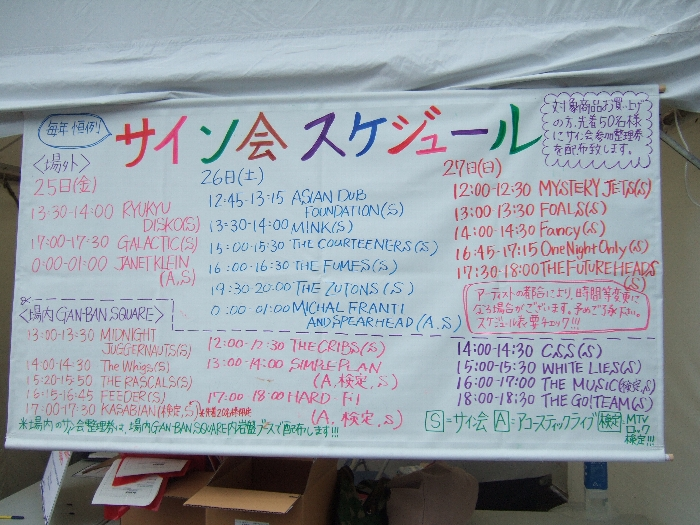 毎年恒例
サイン会 スケジュール
対象商品お買い上げ
の方、先着50名様
にサイン会参加整理券
を配布致します。
<場外>
25日(金)
13:30-14:00 RYUKYU
DISKO(S)
17:00-17:30 GALACTIC(S)
0:00-01:00 JANET KLEIN
(A,S)
26日(土)
12:45-13:15 ASIAN DUB
FOUNDATION(S)
13:30-14:00 MINK(S)
15:00-15:30 THE COURTEENERS(S)
16:00-16:30 THE FUMES(S)
19:30-20:00 THE ZUTONS(S)
0:00-01:00 MICHAL FRANTI
AND SPEARHEAD(A,S)
27日(日)
12:00-12:30 MYSTERY JETS(S)
13:00-13:30 FOALS(S)
14:00-14:30 Fancy(S)
16:45-17:15 One Night Only(S)
17:30-18:00 THE FUTURE HEADS
(S)
アーティストの都合により、時間等変更に
なる場合がございます。予めご了承下さい。
スケジュール表要チェック!!!
<場内 GAN-BAN SQUARE>
13:00-13:30 MIDNIGHT
JUGGERNAUTS(S)
14:00-14:30 The Whigs(S)
15:20-15:50 THE RASCALS(S)
16:15-16:45 FEEDER(S)
17:00-17:30 KASABIAN(検定,S)
12:00-12:30 THE CRIBS(S)
13:00-14:00 SIMPLE PLAN
(A,検定,S)
17:00 18:00 HARD Fi
(A,検定,S)
14:00-14:30 C.S.S(S)
15:00-15:30 WHITE LIES(S)
16:00-17:00 THE MUSIC(検定,S)
18:00-18:30 THE GO!TEAM(S)
※場内のサイン会整理券は、場内GAN-BAN SQUARE内岩盤ブースで配布します!!!
S=サイン会 A=アコースティックライブ 検定=MTV
ロック
検定!!!